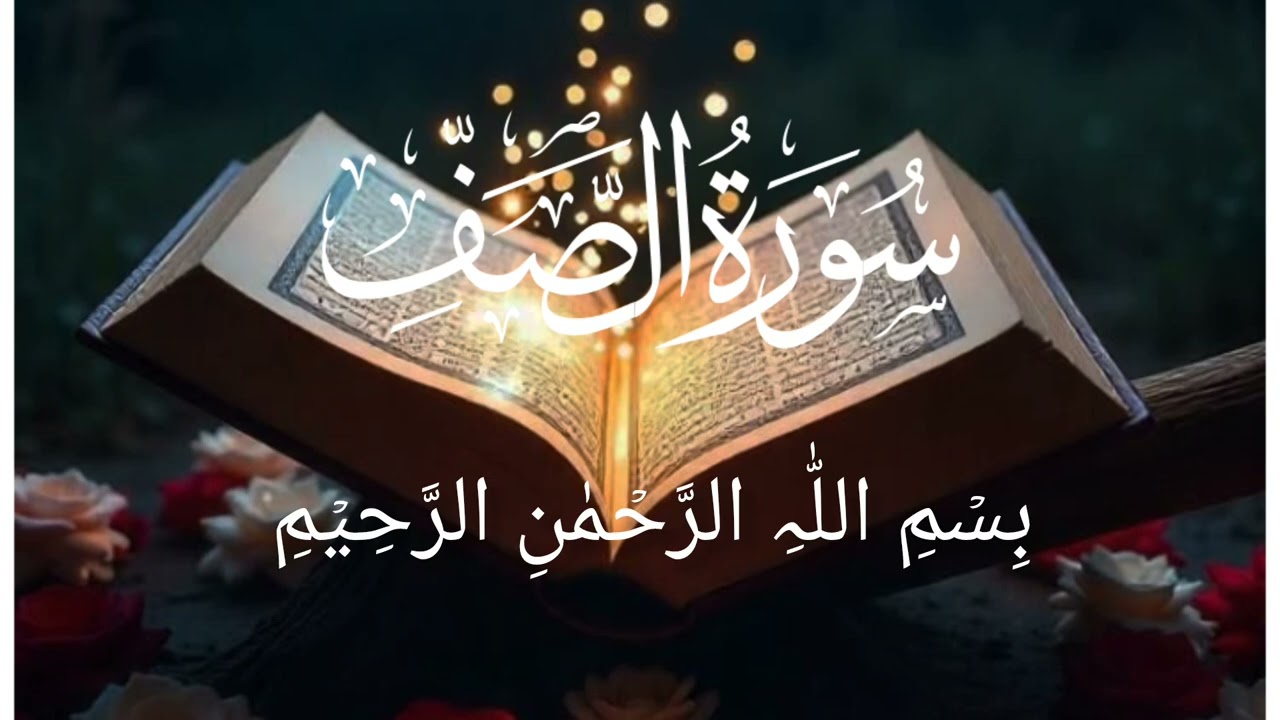 سُورَةُ الصَّفِّ
بِسْمِ اللّٰہِ الرَّحْمٰنِ الرَّحِیْمِ